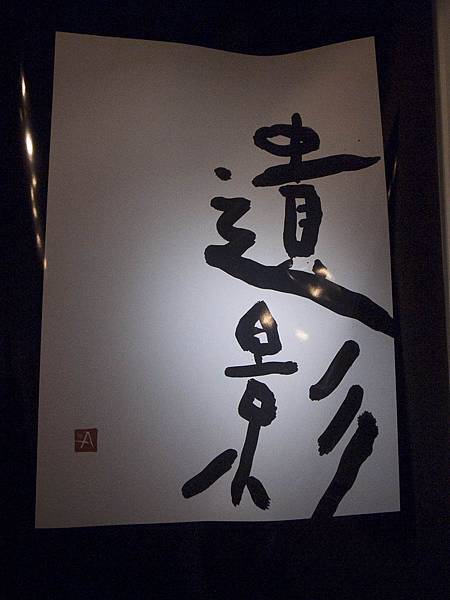 遺影
A